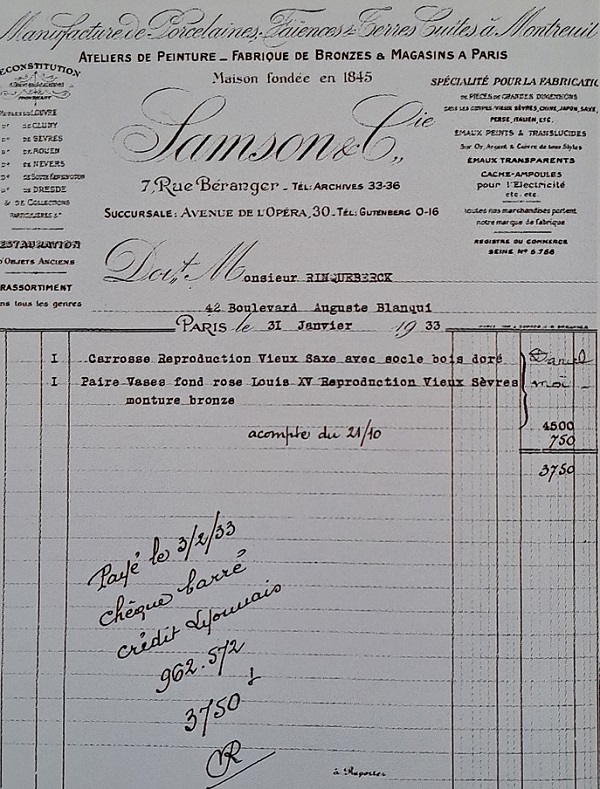 Manufacture de Porcelaines, Faïences & Terres Cuites à Montreuil
ATELIERS DE PEINTURE _ FABRIQUE DE BRONZES & MAGASINS A PARIS
Maison fondée en 1845
ECONSTITUTION
LOUVRE
do de CLUNY
do de SEVRES
do de ROUEN
do de NEVERS
do de SOUTH KENSINGTON
do de DRESDE
& DE COLLECTIONS
PARTICULIERES &a
ESTAURATION
'OBJETS ANCIENS
RASSORTIMENT
ns tous les genres
Samson & Cie
7, Rue Béranger _ TÉL: ARCHIVES 33-36
SUCCURSALE: AVENUE DE L'OPÉRA, 30 _ TÉL: GUTENBERG 0-16
SPÉCIALITÉ POUR LA FABRICATIO
DE PIÈCES DE GRANDES DIMENSIONS
DANS LES GENRES: VIEUX SÈVRES, CHINE, JAPON, SAXE,
PERSE, ITALIEN, ETC.
ÉMAUX PEINTS & TRANSLUCIDES
Sur Or, Argent & Cuivre de tous Styles
ÉMAUX TRANSPARENTS
CACHE-AMPOULES
pour l'Electricité
etc. etc.
Toutes nos marchandises portent
notre marque de fabrique
REGISTRE DU COMMERCE
SEINE No 6.766
Doit Monsieur RINQUEBERCK
42 Boulevard Auguste Blanqui
PARIS le 31 Janvier 1933
I Carrosse Reproduction Vieux Saxe avec socle bois doré
I Paire Vases fond rose Louis XV Reproduction Vieux Sèvres
monture bronze
4500
acompte du 21/10 750
3750
Payé le 3/2/33
chèque barré
crédit Lyonnais
962.572
3750 f
à Reporter